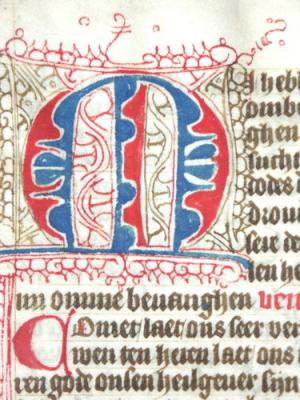 i hebb
ombeu
ghen
suchte
dodes
drouu
seir de
len he
mi ommebeuanghen ven
Comet laet ons seer ver
wen ten heren laet ons
ren gode onsen heilgeuer sijn